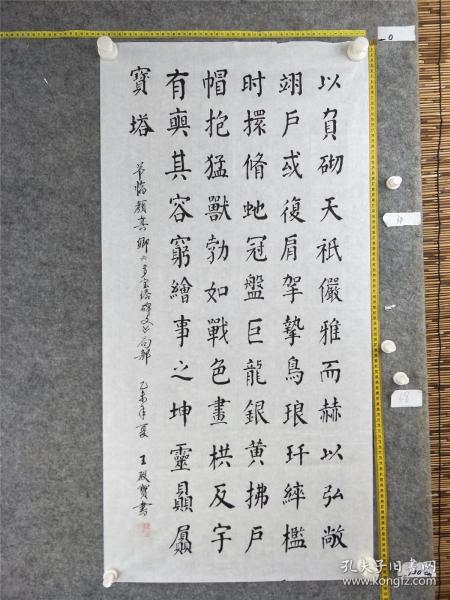 以負砌天祇儼雅而赫以弘敞
翊戶或復肩挐摯鳥琅玕綷檻
时擐脩虵冠盤巨龍銀黄拂戶
帽抱猛獸勃如戰色畫栱反宇
有奭其容窮繪事之坤靈贔屭
寶塔
节临顏真卿多宝塔碑文之局部 乙未年夏 王殿寶書
0
68
孔夫子旧书网